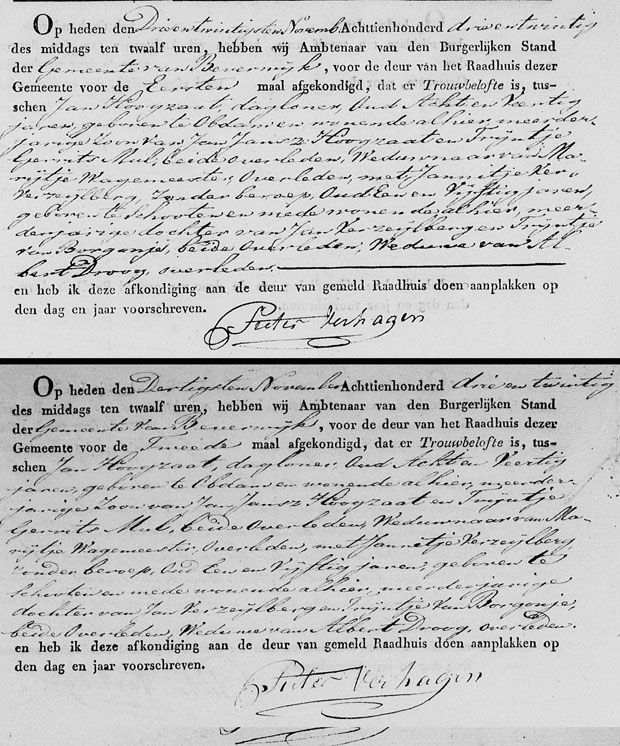 Op heden den Drieentwintigsten Novemb. Achttienhonderd drieentwintig
des middags ten twaalf uren, hebben wij Ambtenaar van den Burgerlijken Stand
der Gemeente van Beverwijk, voor de deur van het Raadhuis dezer
Gemeente voor de Eersten maal afgekondigd, dat er Trouwbelofte is, tus-
schen Jan Hoogzaat, dagloner, Oud Acht en Veertig
jaren, geboren te Obdam en wonende alhier, meerder-
jarige Zoon van Jan Jansz Hoogzaat en Trijntje
Gerrits Mul, beide Overleden, Weduwnaar van Ma-
rijtje Wagemeester, Overleden, met Jannitje Ver-
zeijlberg, Zonder beroep, Oud Een en Vijftig jaren,
geboren te Schooten en mede wonende alhier, meer-
derjarige dochter van Jan Verzeijlberg en Trijntje
van Borgonje, beide Overleden, Weduwe van Al-
bert Droog, overleden.
en heb ik deze afkondiging aan de deur van gemeld Raadhuis doen aanplakken op
den dag en jaar voorschreven.
Pieter Verhagen
Op heden den Dertigsten November Achttienhonderd drie en twintig
des middags ten twaalf uren, hebben wij Ambtenaar van den Burgerlijken Stand
der Gemeente van Beverwijk, voor de deur van het Raadhuis dezer
Gemeente voor de Tweede maal afgekondigd, dat er Trouwbelofte is, tus-
schen Jan Hoogzaat, dagloner, Oud Acht en Veertig
jaren, geboren te Obdam en wonende alhier, meerder-
jarige Zoon van Jan Jansz Hoogzaat en Trijntje
Gerrits Mul, beide Overleden, Weduwnaar van Ma-
rijtje Wagemeester, Overleden, met Jannetje Verzeijlberg,
zonder beroep, Oud Een en Vijftig jaren, geboren te
Schooten en mede wonende alhier, meerderjarige
dochter van Jan Verzeijlberg en Trijntje Van Borgonje,
beide Overleden, Weduwe van Albert Droog, overleden.
en heb ik deze afkondiging aan de deur van gemeld Raadhuis doen aanplakken op
den dag en jaar voorschreven.
Pieter Verhagen